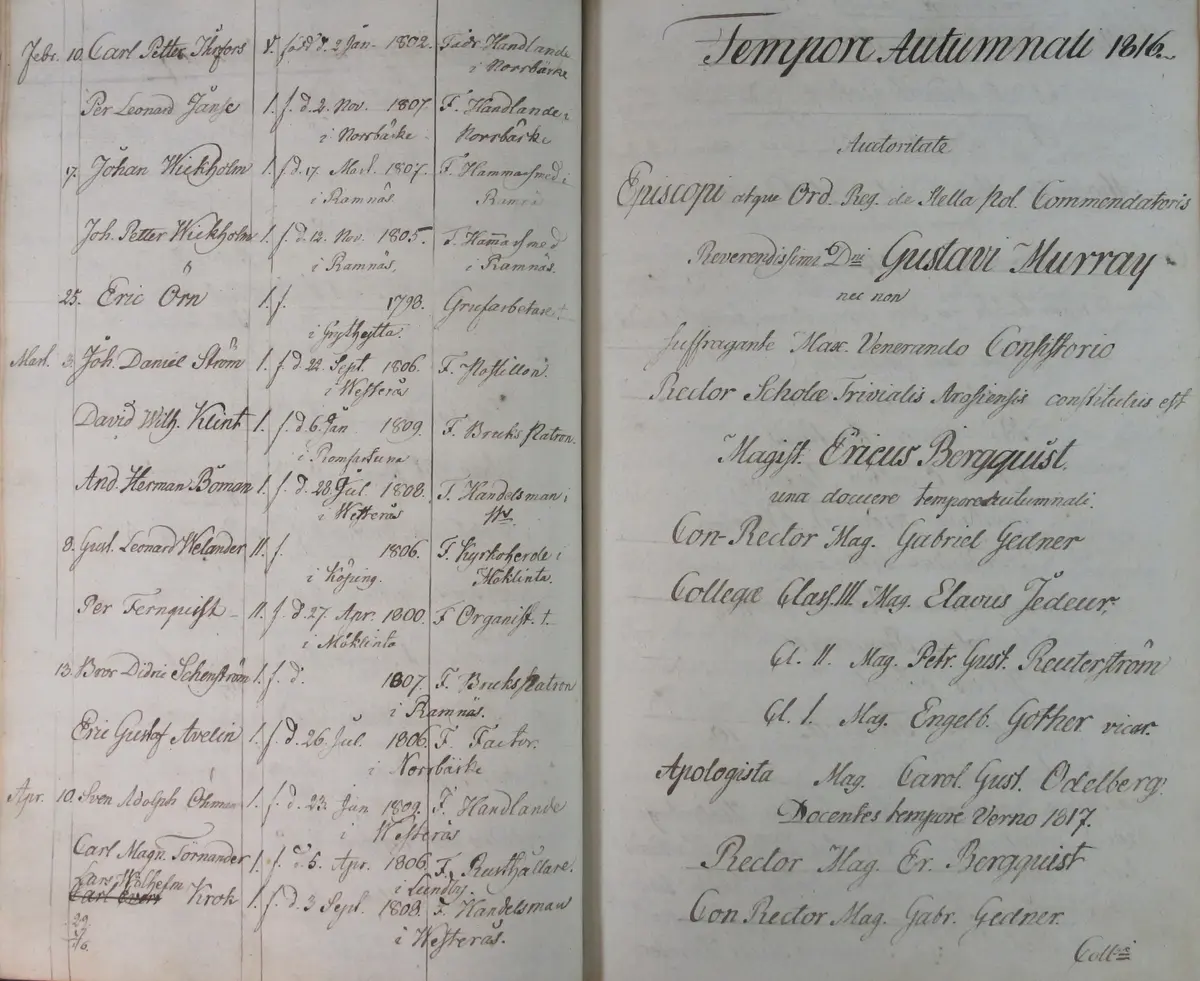 Febr. 10. Carl Petter Thrfors V. född d. 2 Jan. 1802. Fadr. Handlande
i Norrbärke
Per Leonard Janse 1. f. d. 2. Nov. 1807. F. Handlande i
i Norrbärke Norrbärke
17. Johan Wickholm 1. f. d. 17. Mart. 1807. F. Hammarsmed i
i Ramnäs. Ramnäs
Joh. Petter Wickholm 1. f. d. 12. Nov. 1805. F. Hamarsmed
i Ramnäs, i Ramnäs.
25. Eric Örn 1. f. 1798. Grufarbetare †
i Grythytta.
Mart. 3. Joh. Daniel Ström 1. f. d. 22. Sept. 1806. F. Postillon.
i Westerås
David Wilh. Klint 1. f. d. 6. Jan 1809. F. Bruks Patron.
i Romfartuna
And. Herman Boman 1. f. d. 28. Jul. 1808. F. Handelsman i
i Westerås Ws.
8. Gust. Leonard Welander 11. f. 1806. F. Kyrkoherde i
i Köping. Möklinta.
Per Fernquist 11. f. d. 27. Apr. 1800. F Organist. †.
i Möklinta
13. Bror Didric Schenström 1. f. d. 1807. F. Bruks Patron
i Ramnäs.
Eric Gustaf Avelin 1. f. d. 26. Jul. 1806. F. Factor.
i Norrbärke
Apr. 10. Sven Adolph Öhman 1. f. d. 23. Jun 1809. F. Handlande
i Westerås
Carl Magn. Törnander 1. f. d. 5. Apr. 1806. F. Rusthållare.
i Lundby.
Lars Wilhelm
Carl Evert Krok 1. f. d. 3 Sept. 1808. F. Handelsman
i Westerås.
29
17
46.
Tempore Autumnali 1816.
Auctoritate
Episcopi atque Ord. Reg. de Stella Pol. Commendatoris
Reverendissimi Dni Gustavi Murray
nec non
suffragante Max. Venerando Consistorio
Rector Scholæ Trivialis Arosiensis constitutus est
Magist. Ericus Bergquist.
una docuere tempore Autumnali.
Con-Rector Mag. Gabriel Gedner
Collegæ Class. III. Mag. Elavus Jedeur,
Cl. II. Mag. Petr. Gust. Reuterström
Cl. I. Mag. Engelb. Gother vicar.
Apologista Mag. Carol. Gust. Odelberg.
Docentes tempore Verno 1817.
Rector Mag. Er. Bergquist
Con Rector Mag. Gabr. Gedner.